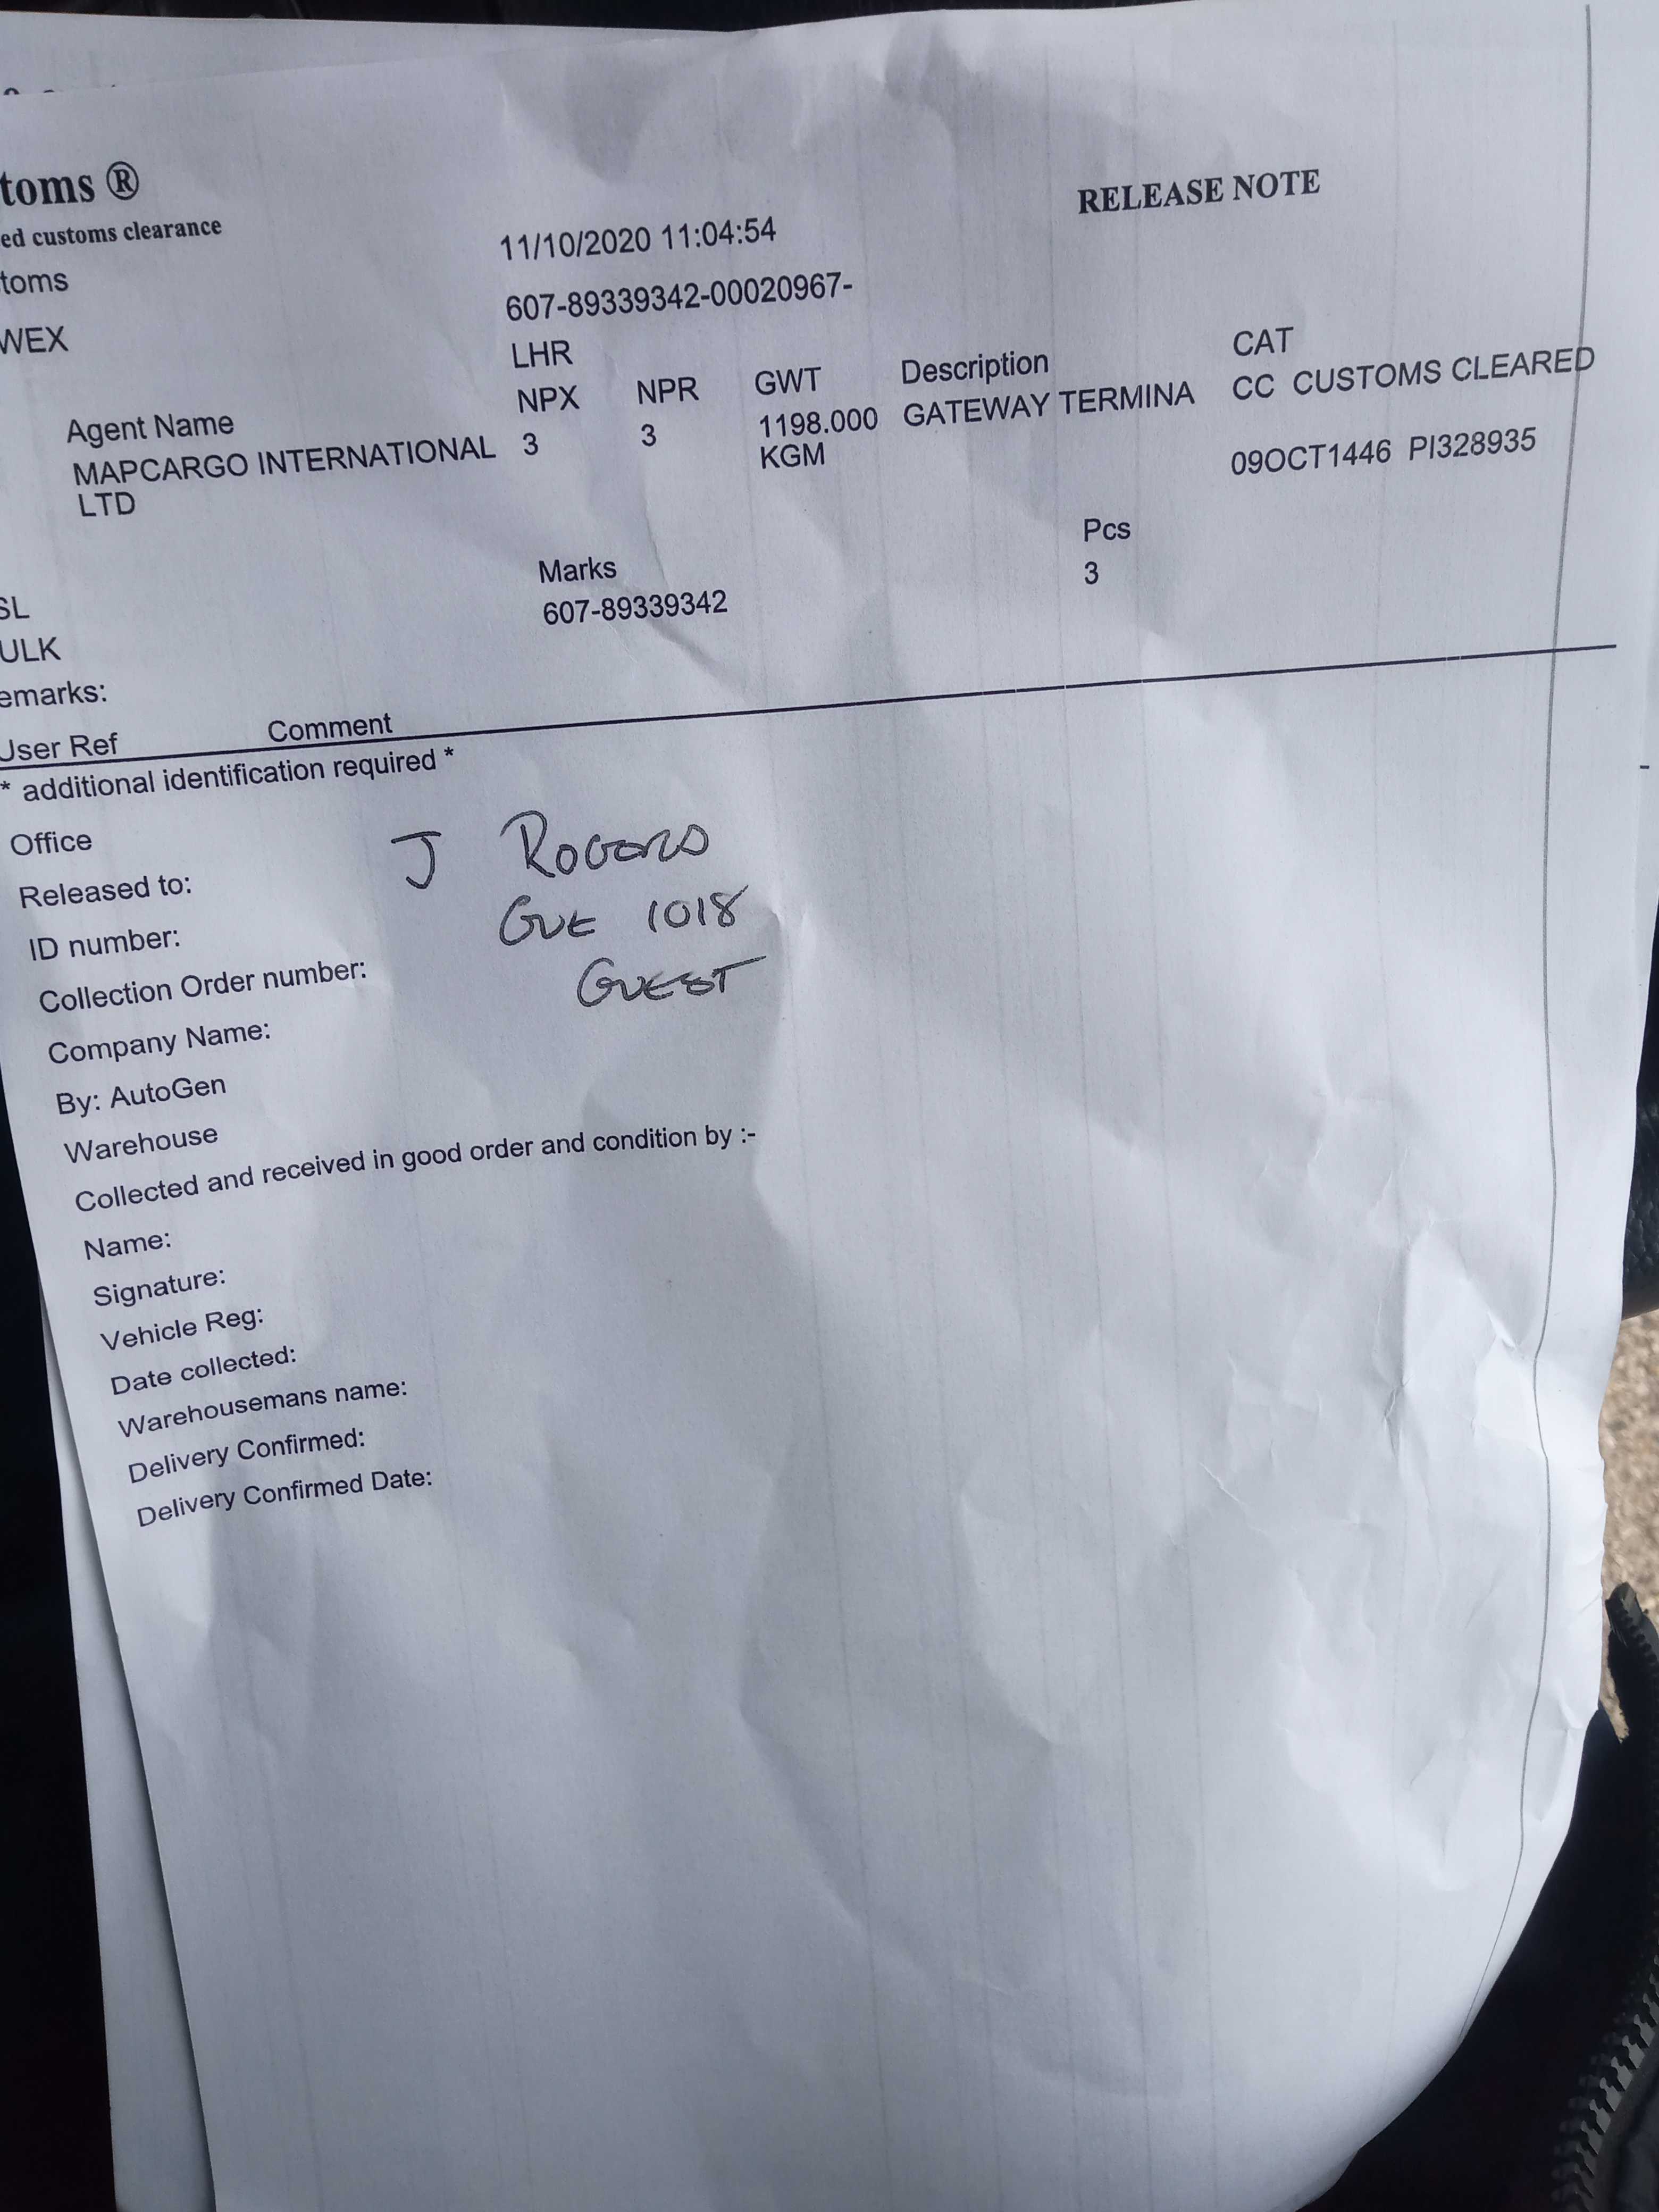 toms ®
RELEASE NOTE
ed customs clearance
11/10/2020 11:04:54
toms
607-89339342-00020967-
WEX
LHR
CAT
Agent Name NPX NPR GWT Description
MAPCARGO INTERNATIONAL 3 3 1198.000 GATEWAY TERMINA CC CUSTOMS CLEARED
LTD KGM 09OCT1446 PI328935
Marks Pcs
SL 607-89339342 3
ULK
emarks:
User Ref Comment
* additional identification required *
Office
Released to: J Rogers
ID number: GUE 1018
Collection Order number: GUEST
Company Name:
By: AutoGen
Warehouse
Collected and received in good order and condition by :-
Name:
Signature:
Vehicle Reg:
Date collected:
Warehousemans name:
Delivery Confirmed:
Delivery Confirmed Date: